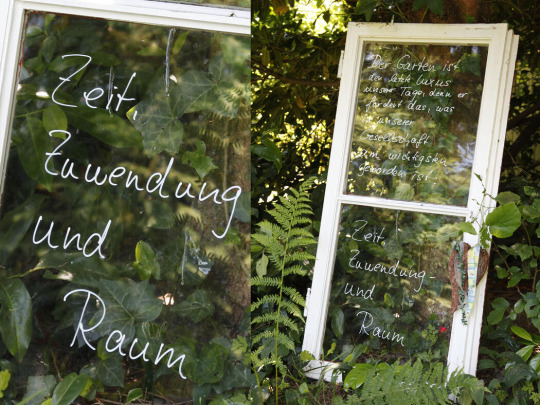 Zeit,
Zuwendung
und
Raum
Der Garten ist
der letzte Luxus
unserer Tage, denn er
fordert das, was
in unserer
Gesellschaft
am wichtigsten
geworden ist
Zeit,
Zuwendung
und
Raum